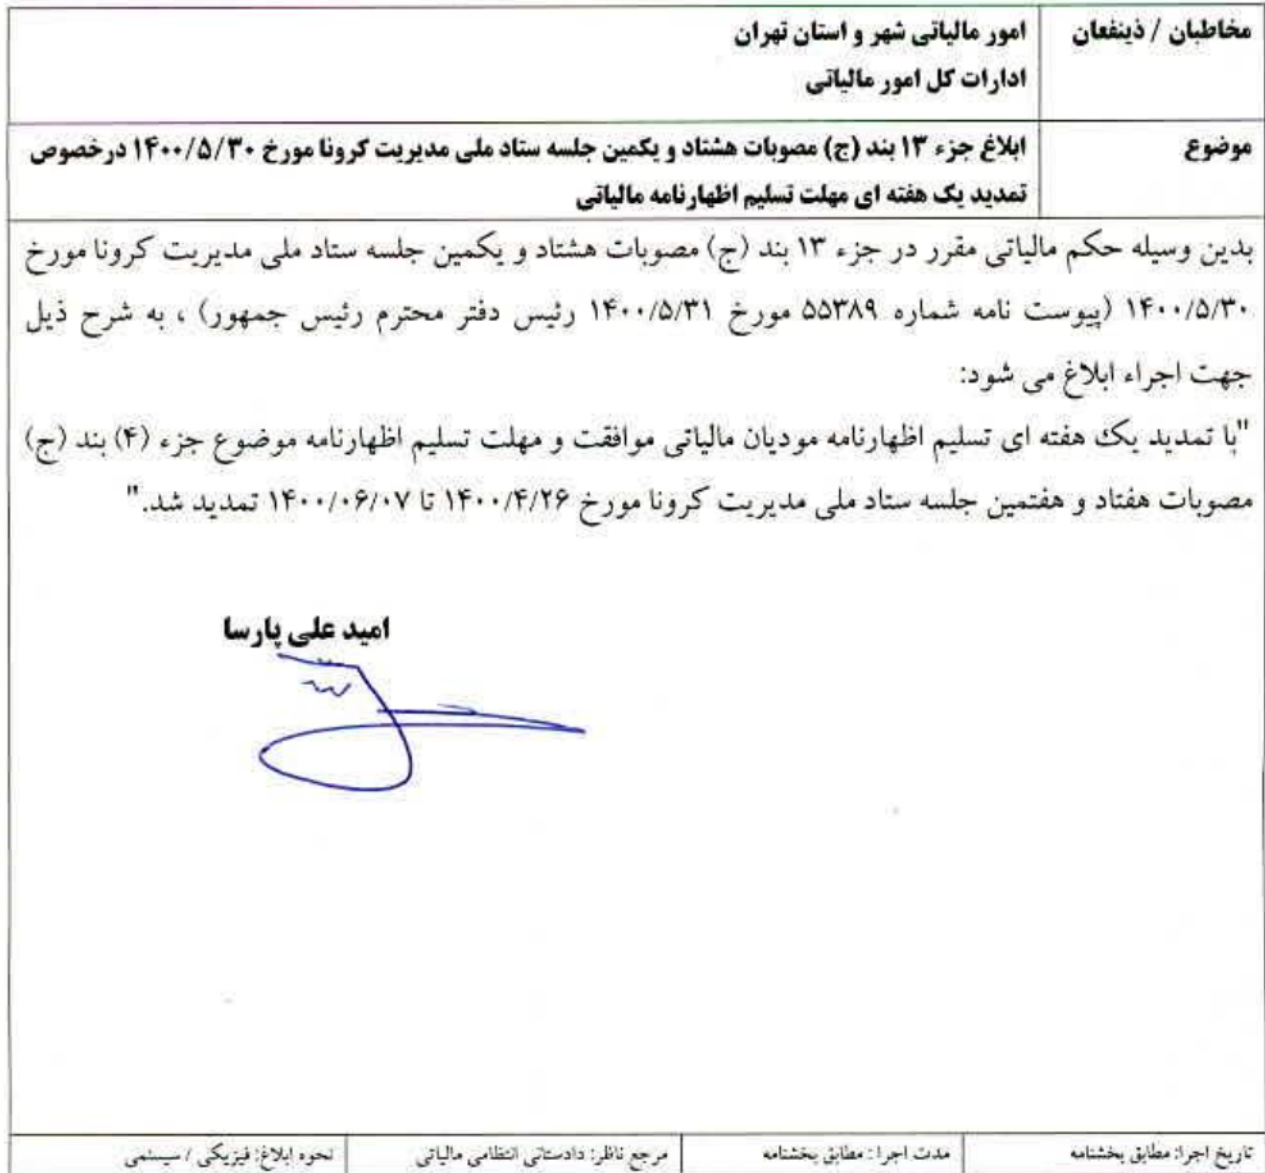 مخاطبان / ذینفعان
امور مالیاتی شهر و استان تهران
ادارات کل امور مالیاتی
موضوع
ابلاغ جزء ۱۳ بند (ج) مصوبات هشتاد و یکمین جلسه ستاد ملی مدیریت کرونا مورخ ۱۴۰۰/۵/۳۰ درخصوص
تمدید یک هفته ای مهلت تسلیم اظهارنامه مالیاتی
بدین وسیله حکم مالیاتی مقرر در جزء ۱۳ بند (ج) مصوبات هشتاد و یکمین جلسه ستاد ملی مدیریت کرونا مورخ
۱۴۰۰/۵/۳۰ (پیوست نامه شماره ۵۵۳۸۹ مورخ ۱۴۰۰/۵/۳۱ رئیس دفتر محترم رئیس جمهور) ، به شرح ذیل
جهت اجراء ابلاغ می شود:
"با تمدید یک هفته ای تسلیم اظهارنامه مودیان مالیاتی موافقت و مهلت تسلیم اظهارنامه موضوع جزء (۴) بند (ج)
مصوبات هفتاد و هفتمین جلسه ستاد ملی مدیریت کرونا مورخ ۱۴۰۰/۴/۲۶ تا ۱۴۰۰/۰۶/۰۷ تمدید شد."
امید علی پارسا
تاریخ اجرا: مطابق بخشنامه
مدت اجرا : مطابق بخشنامه
مرجع ناظر: دادستانی انتظامی مالیاتی
نحوه ابلاغ: فیزیکی / سیستمی